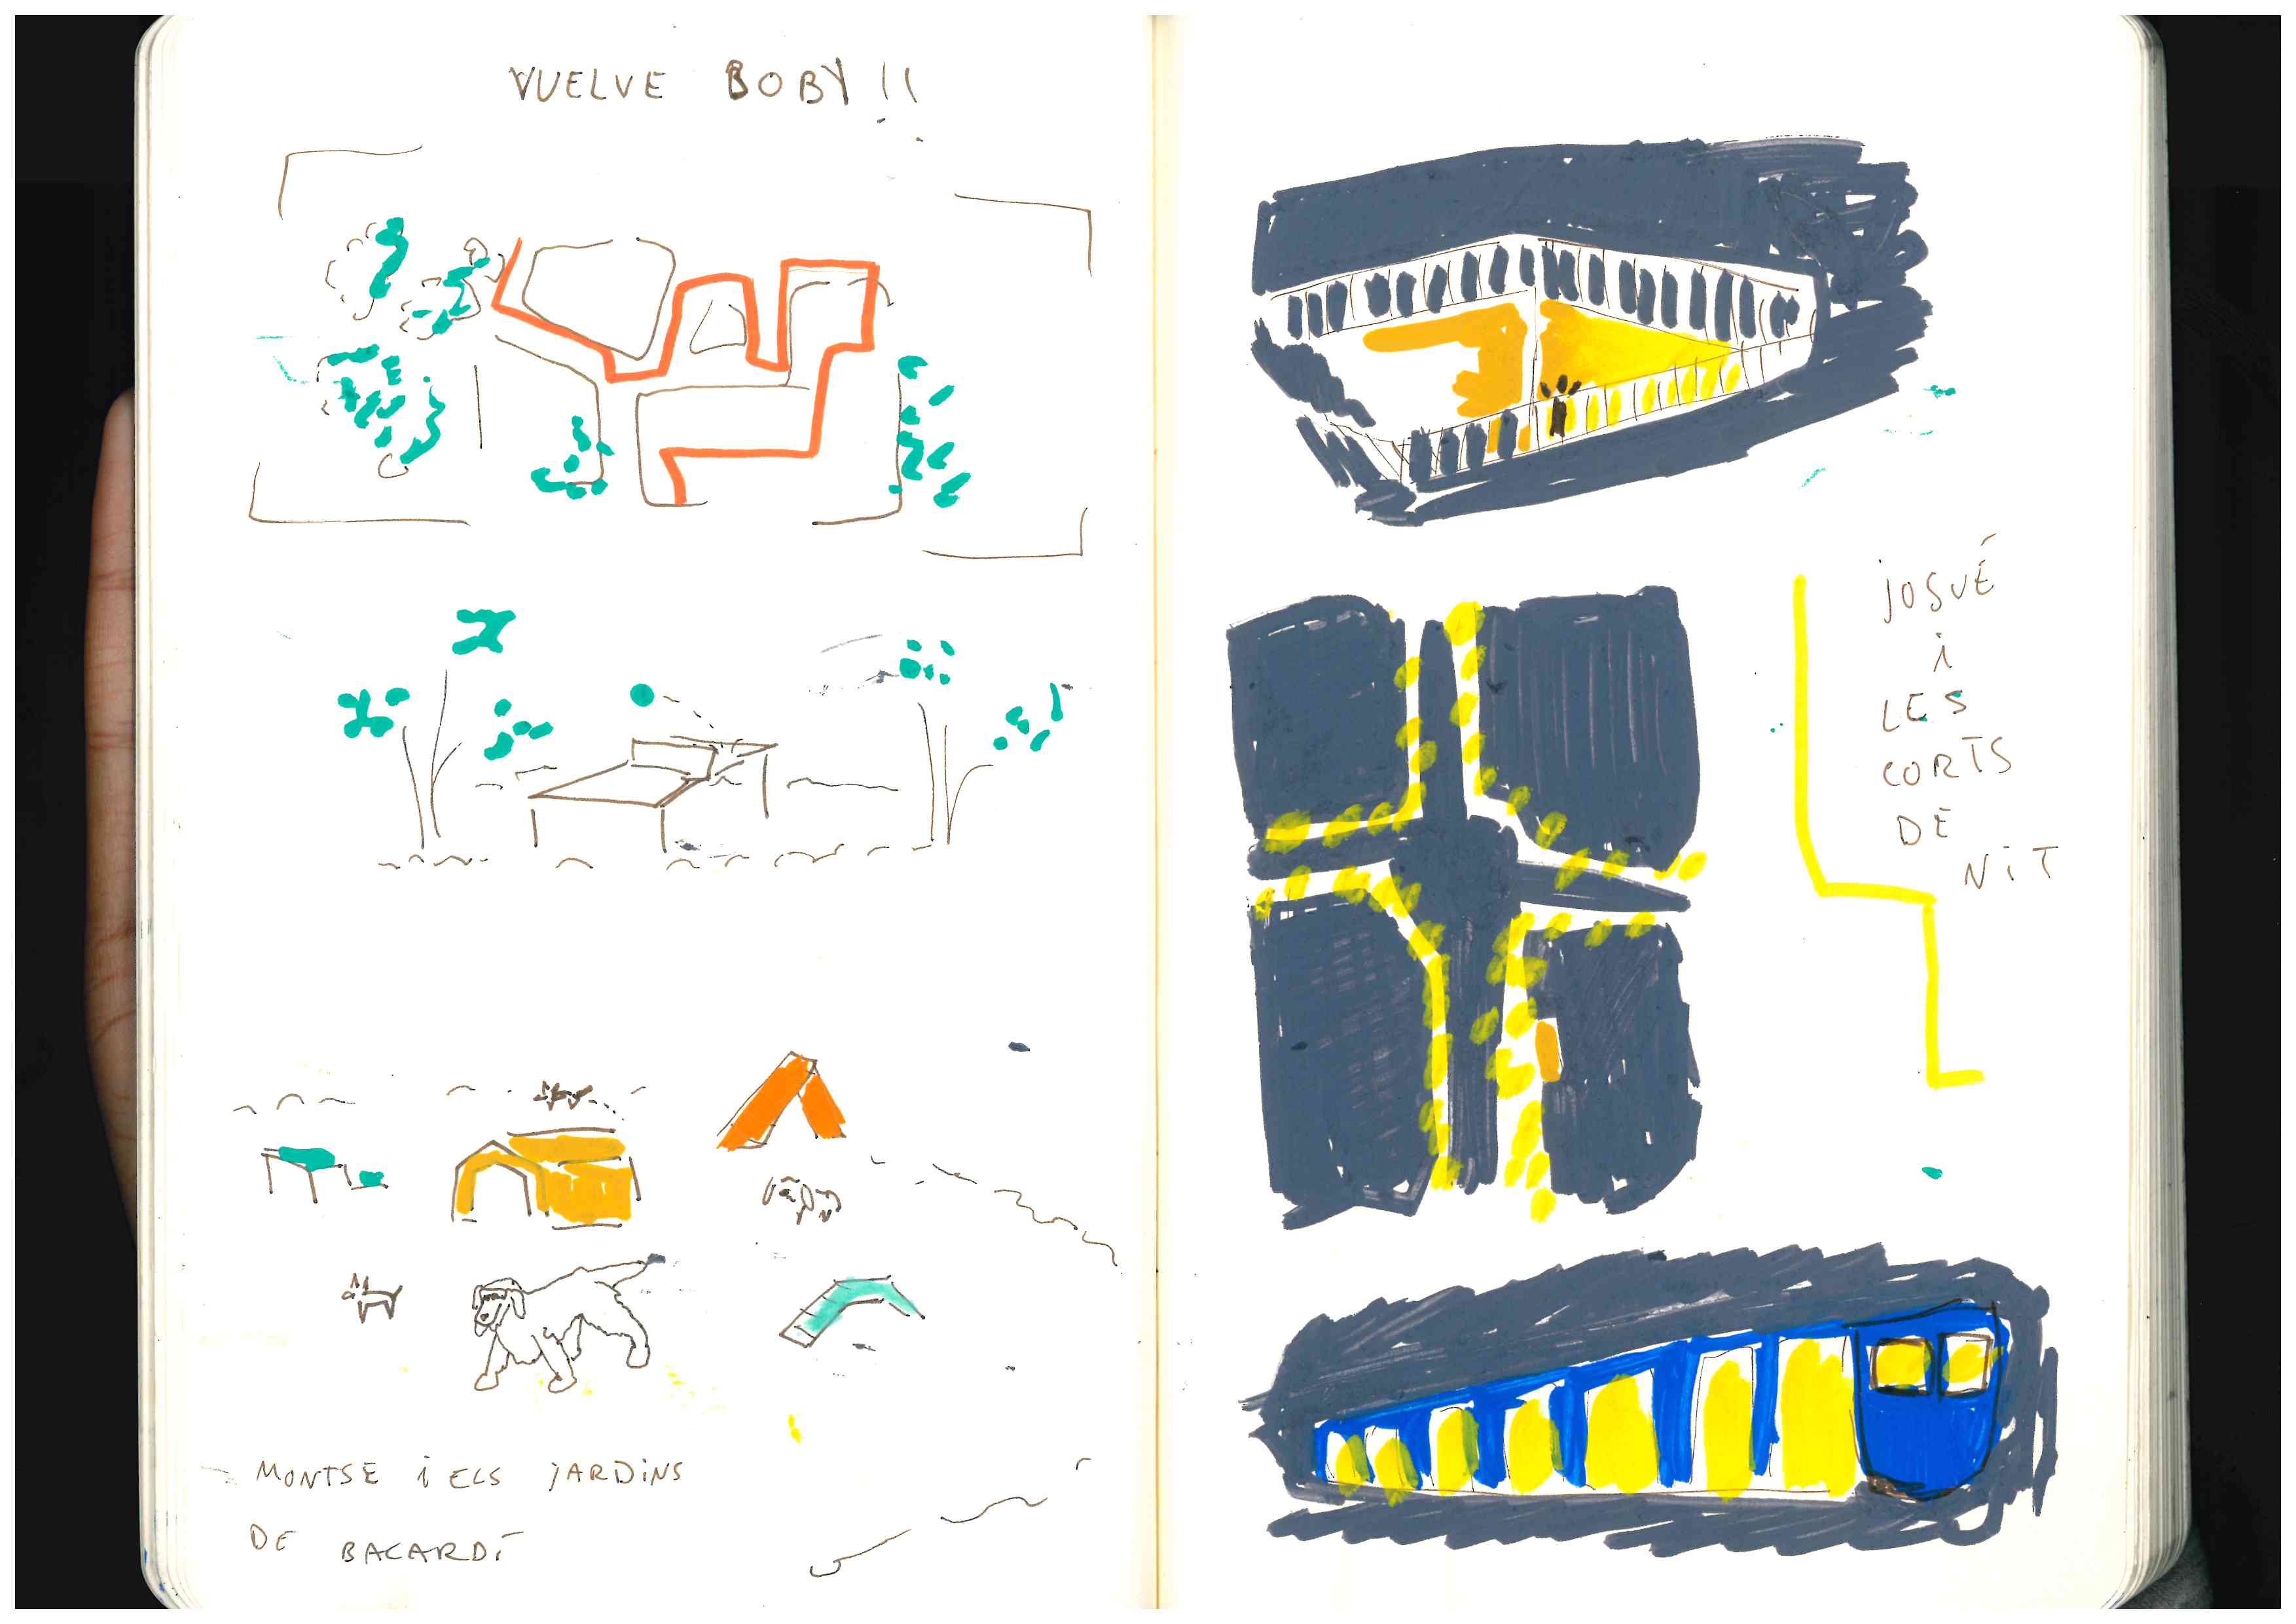 VUELVE BOBY!!
MONTSE i ELS JARDiNS
DE BACARDÍ
JOSUÉ
i
LES
CORTS
DE
NiT